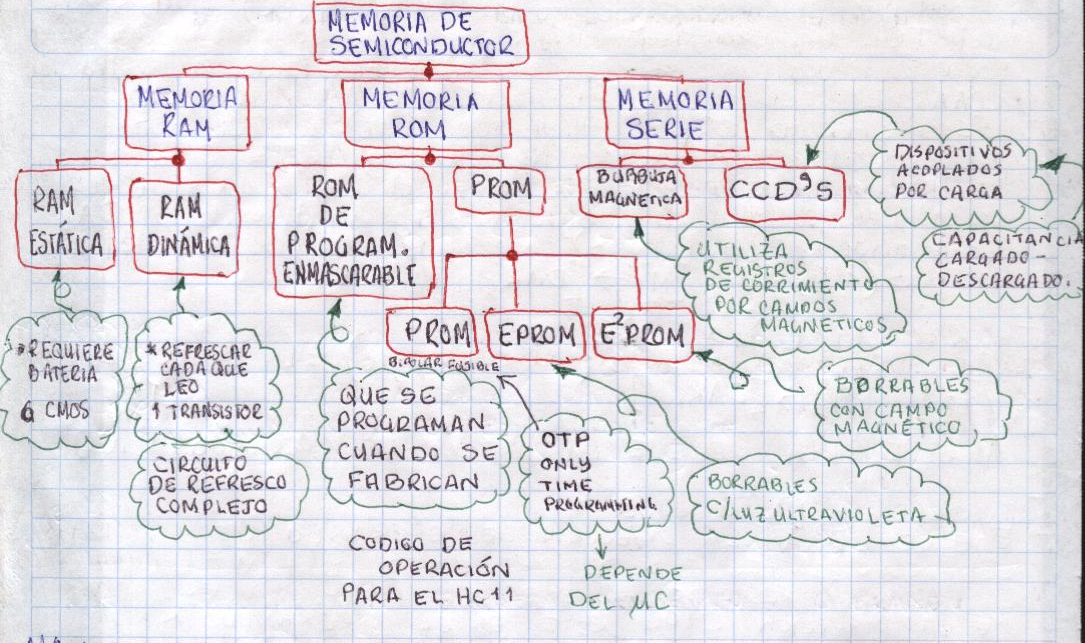 MEMORIA DE
SEMICONDUCTOR
MEMORIA
RAM
MEMORIA
ROM
MEMORIA
SERIE
RAM
ESTÁTICA
RAM
DINÁMICA
ROM
DE
PROGRAM.
ENMASCARABLE
PROM
BURBUJA
MAGNETICA
CCD'S
DISPOSITIVOS
ACOPLADOS
POR CARGA
CAPACITANCIA
CARGADO-
DESCARGADO.
UTILIZA
REGISTROS
DE CORRIMIENTO
POR CAMPOS
MAGNÉTICOS
PROM
BIPOLAR FUSIBLE
EPROM
E²PROM
*REQUIERE
BATERIA
6 CMOS
*REFRESCAR
CADA QUE
LEO
1 TRANSISTOR
CIRCUITO
DE REFRESCO
COMPLEJO
QUE SE
PROGRAMAN
CUANDO SE
FABRICAN
OTP
ONLY
TIME
PROGRAMMING
BORRABLES
CON CAMPO
MAGNÉTICO
BORRABLES
C/LUZ ULTRAVIOLETA
CODIGO DE
OPERACIÓN
PARA EL HC11
DEPENDE
DEL µC